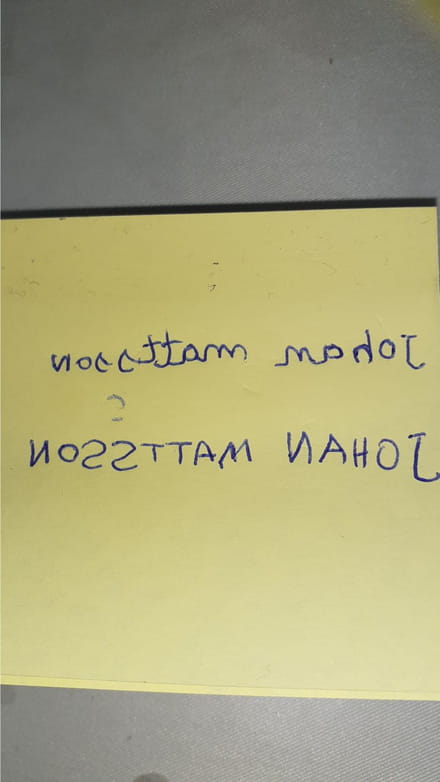 Johan mattsson
JOHAN MATTSSON